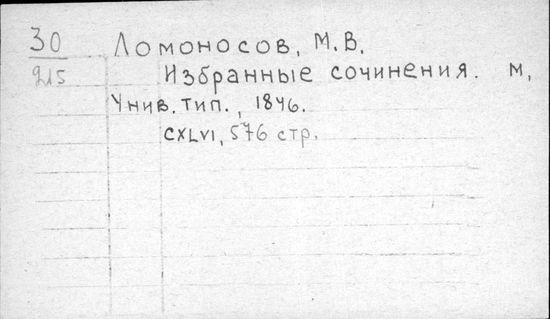 30 Ломоносов, М.В.
215 Избранные сочинения. М,
Унив. тип., 1846.
CXLVI, 576 стр.